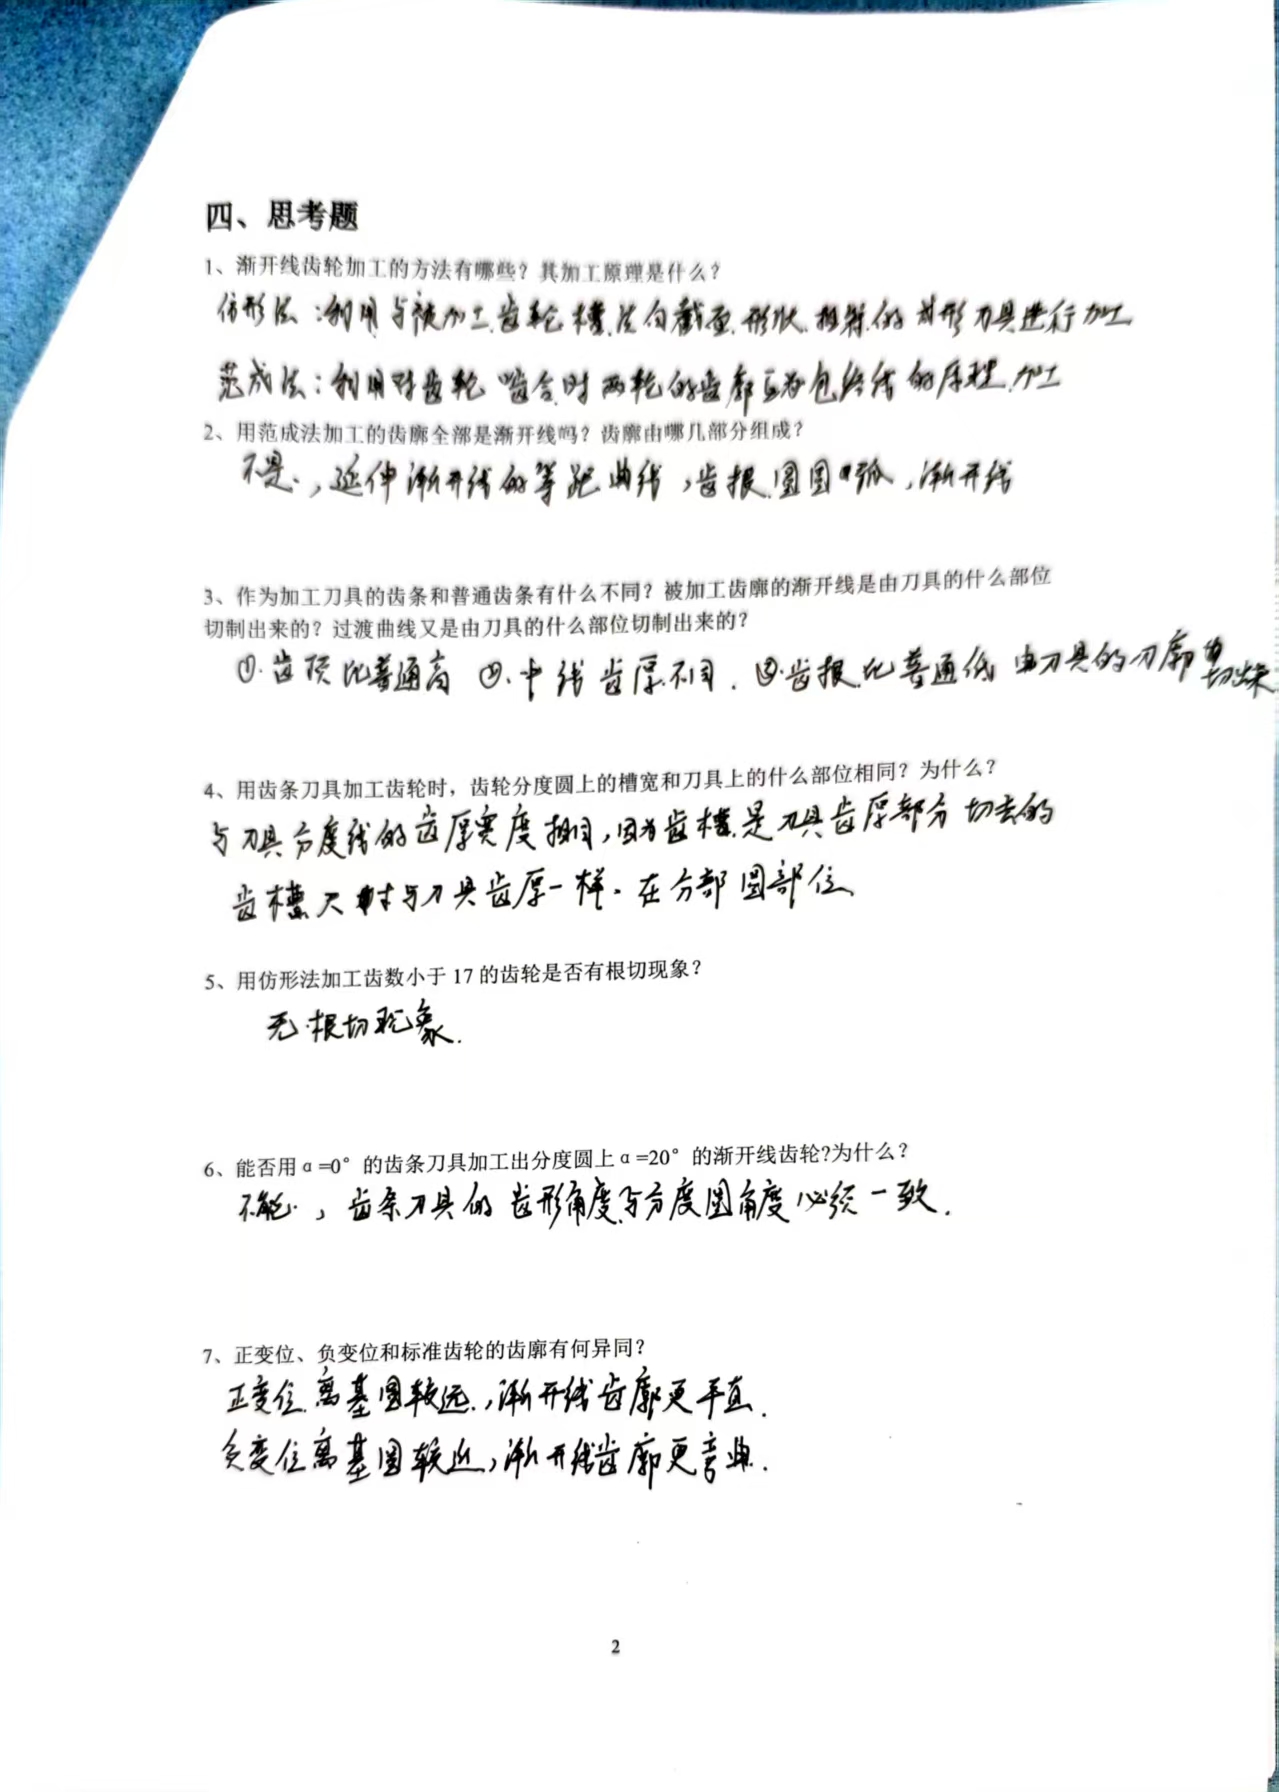 四、思考题
1、渐开线齿轮加工的方法有哪些？其加工原理是什么？
仿形法：利用与被加工齿轮槽法向截面形状相符的成形刀具进行加工
范成法：利用对齿轮啮合时两轮的齿廓互为包络线的原理加工
2、用范成法加工的齿廓全部是渐开线吗？齿廓由哪几部分组成？
不是，延伸渐开线的等距曲线，齿根圆圆弧，渐开线
3、作为加工刀具的齿条和普通齿条有什么不同？被加工齿廓的渐开线是由刀具的什么部位
切制出来的？过渡曲线又是由刀具的什么部位切制出来的？
①.齿顶比普通高 ②.中线齿厚不同. ③齿根比普通低 由刀具的刀廓 切出来
4、用齿条刀具加工齿轮时，齿轮分度圆上的槽宽和刀具上的什么部位相同？为什么？
与刀具分度线的齿厚宽度相同，因为齿槽是刀具齿厚部分切去的
齿槽尺寸与刀具齿厚一样。在分部圆部位
5、用仿形法加工齿数小于 17 的齿轮是否有根切现象？
无根切现象.
6、能否用α=0°的齿条刀具加工出分度圆上α=20°的渐开线齿轮?为什么？
不能，齿条刀具的齿形角度与分度圆角度必须一致.
7、正变位、负变位和标准齿轮的齿廓有何异同？
正变位离基圆较远，渐开线齿廓更平直.
负变位离基圆较近，渐开线齿廓更弯曲.
2